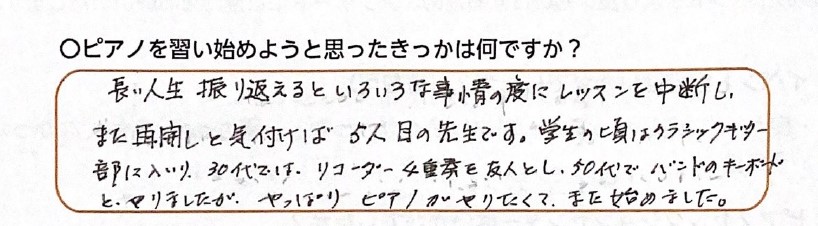 ○ピアノを習い始めようと思ったきっかは何ですか？
長い人生 振り返えるといろいろな事情の度にレッスンを中断し、
また再開しと気付けば5人目の先生です。学生の頃はクラシックギター
部に入いり、30代では、リコーダー4重奏を友人とし、50代でバンドのキーボード
と、やりましたが、やっぱりピアノがやりたくて、また始めました。